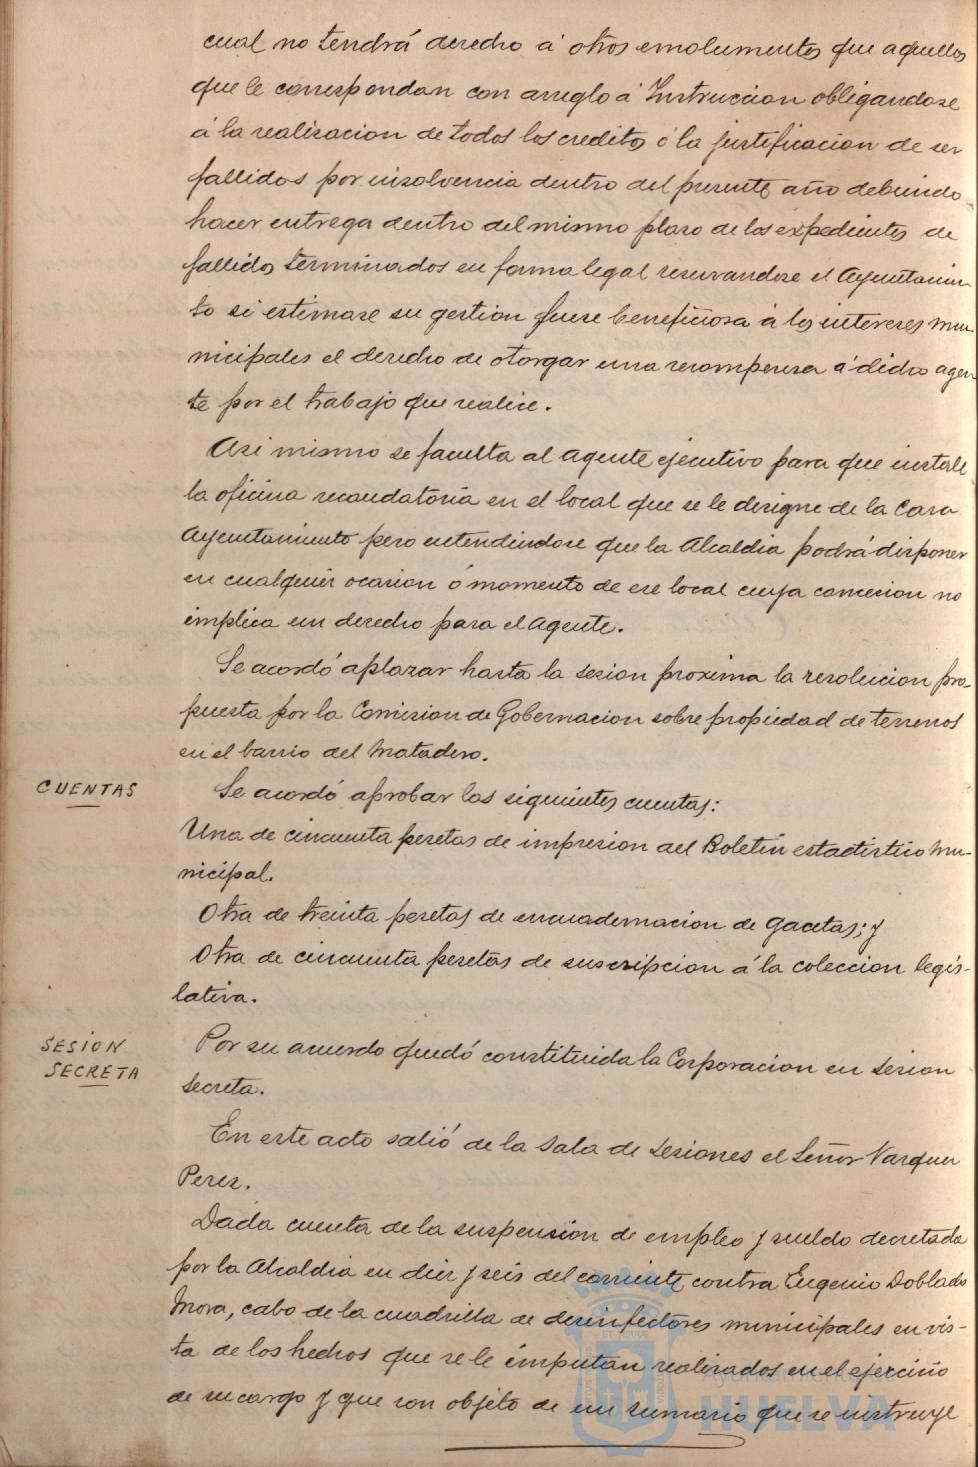 cual no tendrá derecho á otros emolumentos que aquellos
que le correspondan con arreglo á Instruccion obligandose
á la realizacion de todos los creditos ó la justificacion de ser
fallidos por insolvencia dentro del presente año debiendo
hacer entrega dentro del mismo plazo de los expedientes de
fallidos terminados en forma legal reservandose el Ayuntamien-
to si estimase su gestion fuese beneficiosa á los intereses mu-
nicipales el derecho de otorgar una recompensa á dicho agen
te por el trabajo que realice.
Asi mismo se faculta al agente ejecutivo para que instale
la oficina recaudatoria en el local que se le designe de la Casa
Ayuntamiento pero entendiendose que la Alcaldia podrá disponer
en cualquier ocasion ó momento de ese local cuya concesion no
implica un derecho para el Agente.
Se acordó aplazar hasta la sesion proxima la resolucion pro-
puesta por la Comision de Gobernacion sobre propiedad de terrenos
en el barrio del Matadero.
CUENTAS
Se acordó aprobar las siguientes cuentas:
Una de cincuenta pesetas de impresion del Boletin estadistico Mu-
nicipal.
Otra de treinta pesetas de encuadernacion de Gacetas; y
Otra de cincuenta pesetas de suscripcion á la coleccion legis-
lativa.
SESION
SECRETA
Por su acuerdo quedó constituida la Corporacion en sesion
secreta.
En este acto salió de la Sala de Sesiones el Señor Vazquez
Perez.
Dada cuenta de la suspension de empleo y sueldo decretada
por la Alcaldia en diez y seis del corriente contra Eugenio Doblado
Mora, cabo de la cuadrilla de desinfectores municipales en vis-
ta de los hechos que se le imputan realizados en el ejercicio
de su cargo y que son objeto de un sumario que se instruye
Ayuntamiento de
HUELVA